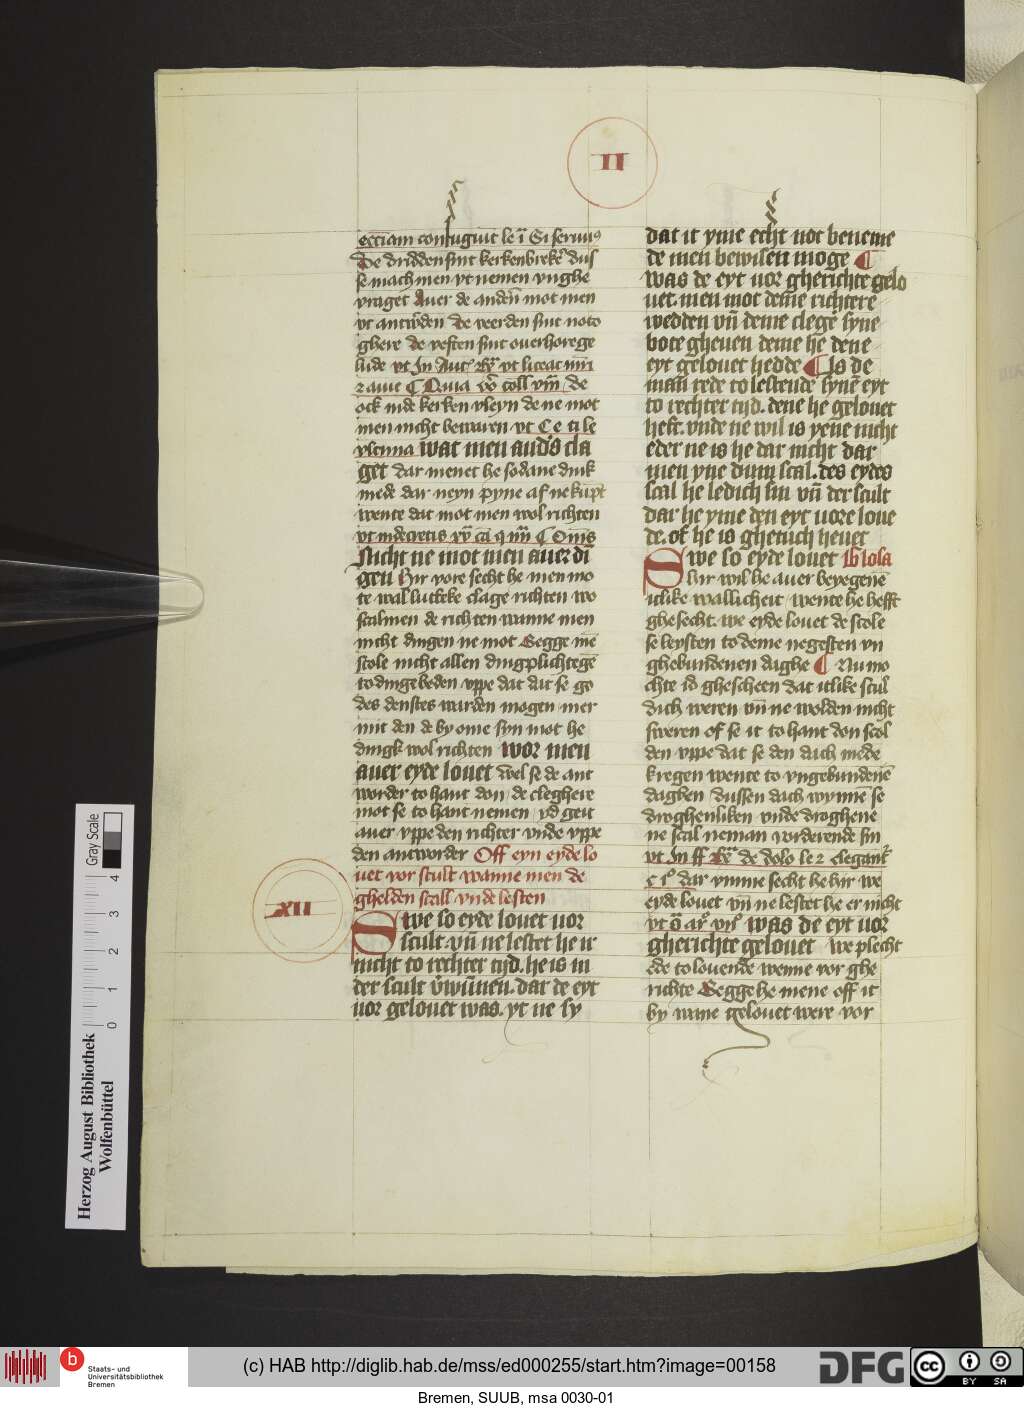 II
ecciam confugiut le i Si seruus
De dridden sint kerkenbreker dus
se mach men vt nemen vnghe
vraget Auer de anderen mot men
vt antworden De veerden sint noto
ghere de vesten sint ouerhorege
lude vt In Aut
2 aue ¶ de
ock inde kerken vleyn de ne mot
men nicht bewaren vt C e ti le
wat men anders cla
get dar menet he sodane dink
mede dar neyn pyne af ne kumpt
wente dat mot men wol richten
vt indecretis
Nicht ne mot men auer di
gen Hir vore secht he men mo
te wal lutteke clage richten wo
scalmen de richten wanne men
nicht dingen ne mot Segge me
scole nicht allen dingplichtegen
to dinge beden vppe dat dat se go
des denstes warden mogen mer
mit den de by ome syn mot he
dingk wol richten wor men
auer eyde louet wel se de ant
worder to hant don de cleghere
mot se to hant nemen vd geit
auer vppe den richter vnde vppe
den antworder Off eyn eyde lo
uet vor scult wanne men de
ghelden scall vnde lesten
XII
Swe so eyde louet uor
scult vn̄ ne lestet he ir
nicht to rechter tijd. he is in
der scult vorwunnen. dat de eyt
uor gelouet was. yt ne sy
dat it yme echt not beneme
de men bewisen moge ¶
was de eyt uor gherichte gelo
uet. men mot deme richtere
wedden vn̄ deme cleger syne
bote gheuen deme he dene
eyt gelouet hedde ¶ Is de
man rede to lestende syne eyt
to rechter tijd. dene he gelouet
heft. vnde ne wil is yene nicht
eder ne is he dar nicht dar
men yne dun scal. des eydes
scal he ledich sin vn̄ der scult
dar he yme den eyt uore loue
de. of he is ghetuch heuet
Swe so eyde louet Glosa
Hir wil he auer beyegene
itlike wallicheit wente he hefft
ghesecht. we eyde louet de scole
se leysten to deme negesten vn
ghebundenen daghe ¶ Nu mo
chte id ghescheen dat itlike scul
dich weren vn̄ ne wolden nicht
sweren of se it to hant don scol
den vppe dat se den dach mede
kregen wente to vngebundene
daghen dussen dach wynne se
droghenliken vnde droghene
ne scal neman vorderende sin
vt In ff de dolo le 2
dar ynne secht he hir we
eyde louet vn̄ ne lestet he er nicht
was de eyt uor
gherichte gelouet we plecht
ede to louende wenne vor ghe
richte Segge he mene off it
by wane gelouet were vor
Gray Scale
4
3
2
1
0
Herzog August Bibliothek
Wolfenbüttel
b
Staats- und
Universitätsbibliothek
Bremen
(c) HAB http://diglib.hab.de/mss/ed000255/start.htm?image=00158
DFG
cc BY SA
Bremen, SUUB, msa 0030-01